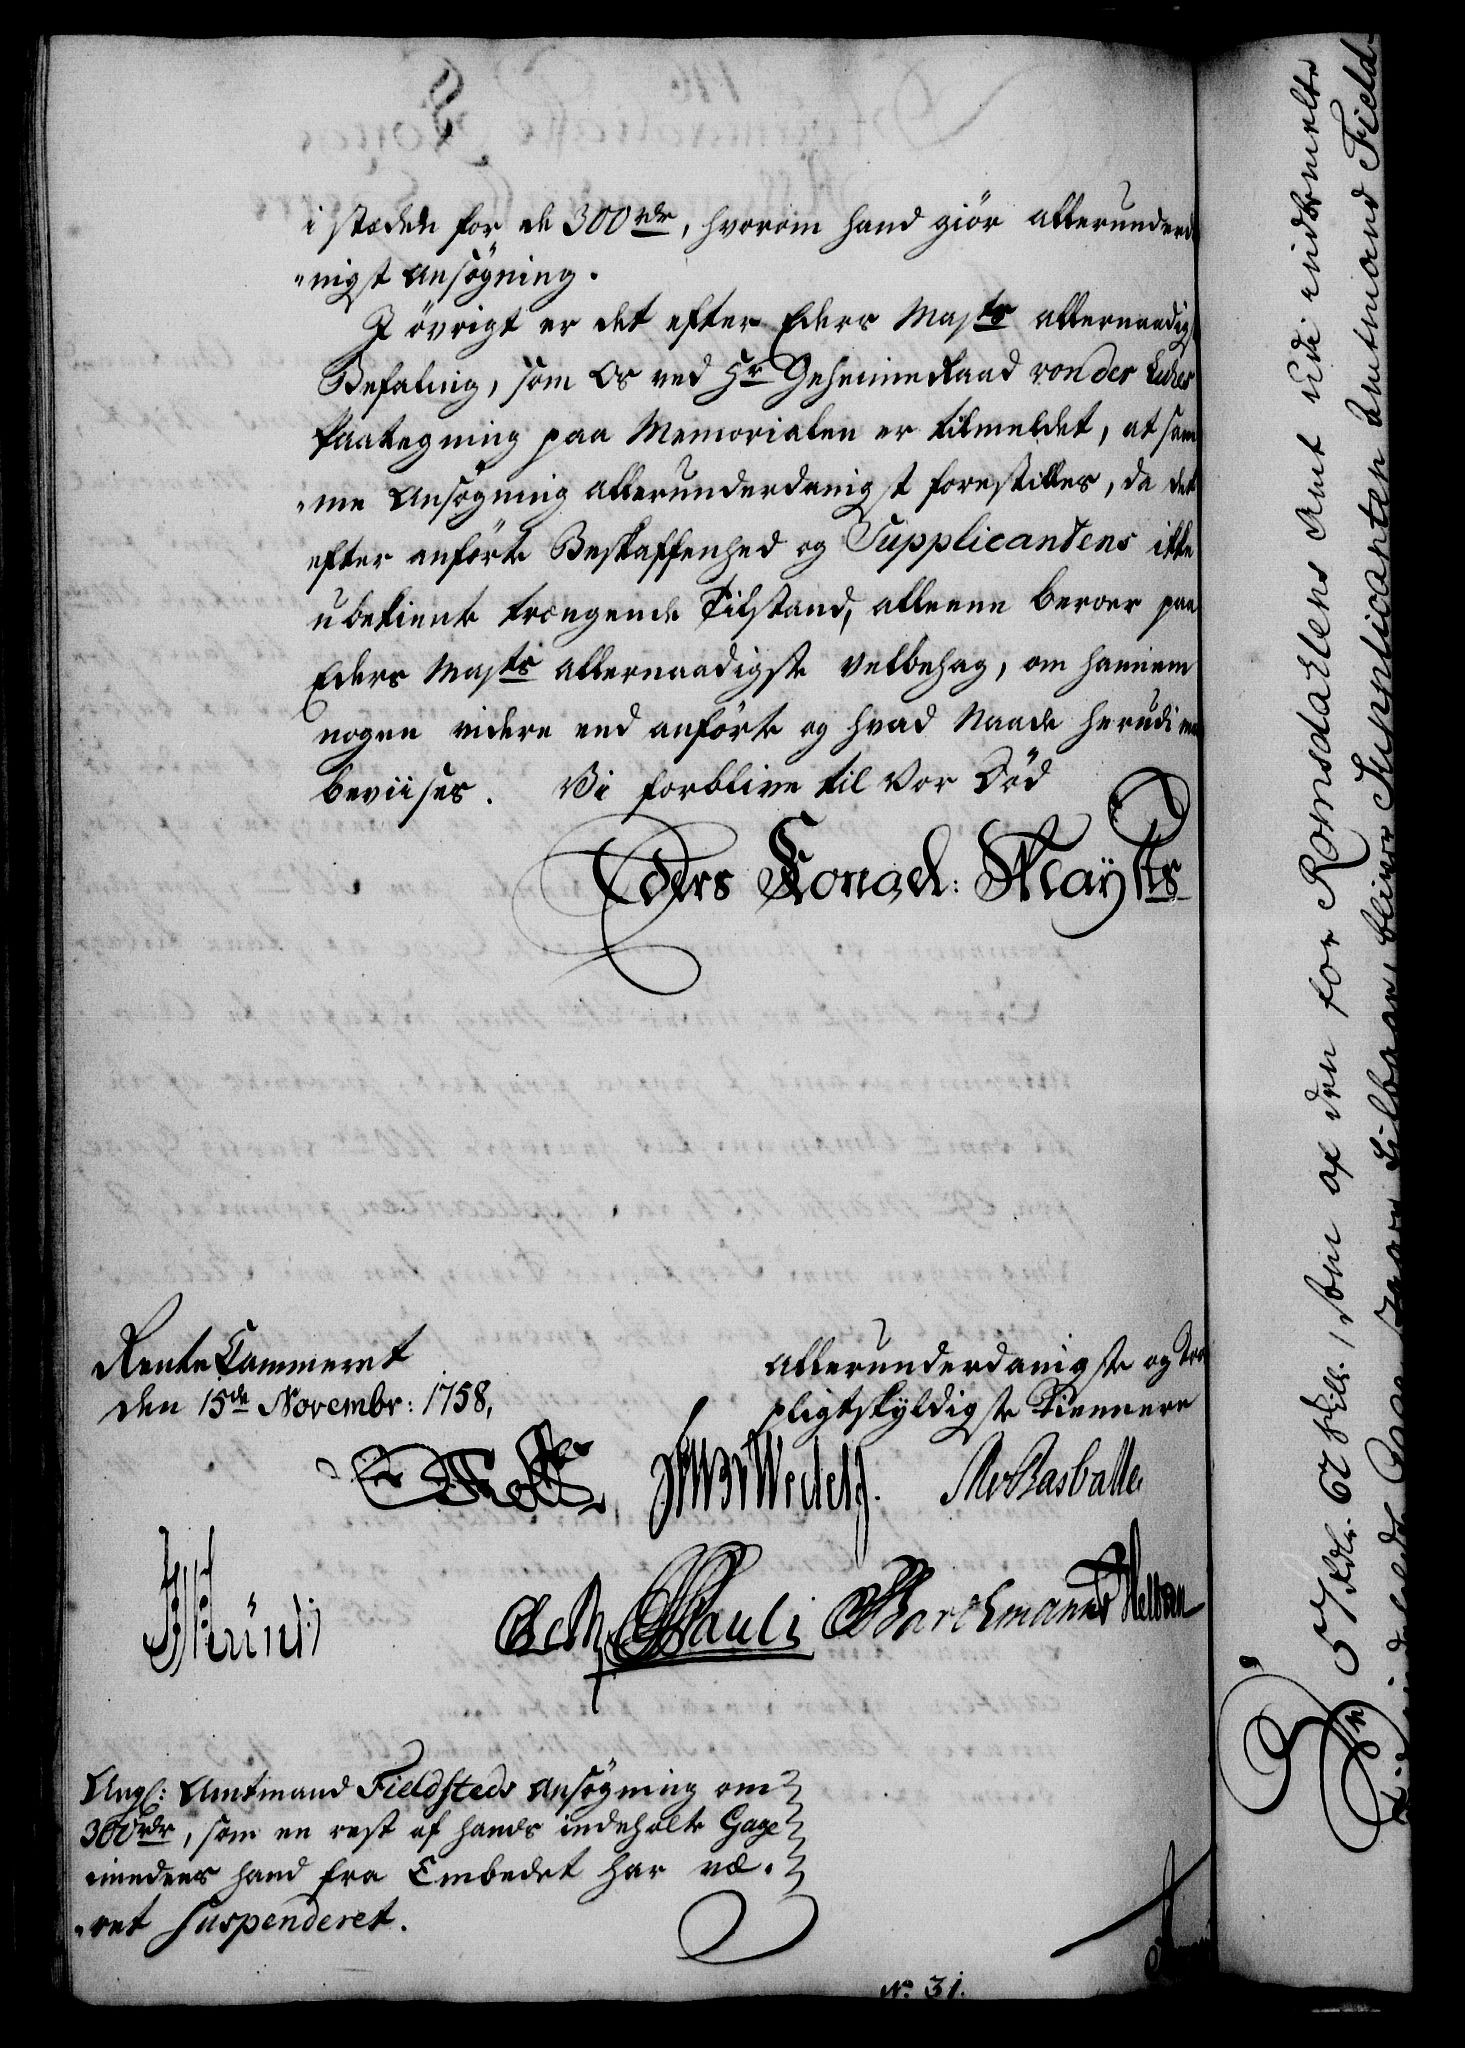 i stæden for de 300 rdr, hvorom hand giör allerunderd
nigst Ansögning.
I övrigt er det efter Eders Majts allernaadig
Befaling, som Os ved Hr Geheimeraad von der Lühes
Paategning paa Memorialen er tilmeldet, at sam
me Ansögning allerunderdanigst forestilles, da det
efter anförte Beskaffenhed og Supplicantens ikke
ubekiente trængende Tilstand, alleene beroer paa
Eders Majts allernaadigste Velbehag, om hannem
nogen videre end anförte og hvad Naade herudi maa
beviises. Vi forblive til Vor Död
Eders Kongel: Mayts
Rente Cammeret
den 15de Novembr: 1758,
allerunderdanigste og
pligtskyldigste Tiennere
Wedel
Rasballe
Pauli Barchmann
Ang: Amtmand Fieldsteds Ansögning om
300 rdr, som en rest af hands indeholte Gage
imedens hand fra Embedet har væ
ret Suspenderet.
No 31.
57 Rdlr. 62 skill., som af den for Romsdahlens Amt udi indbemelte
bliver Supplicanten Amtmand Field-